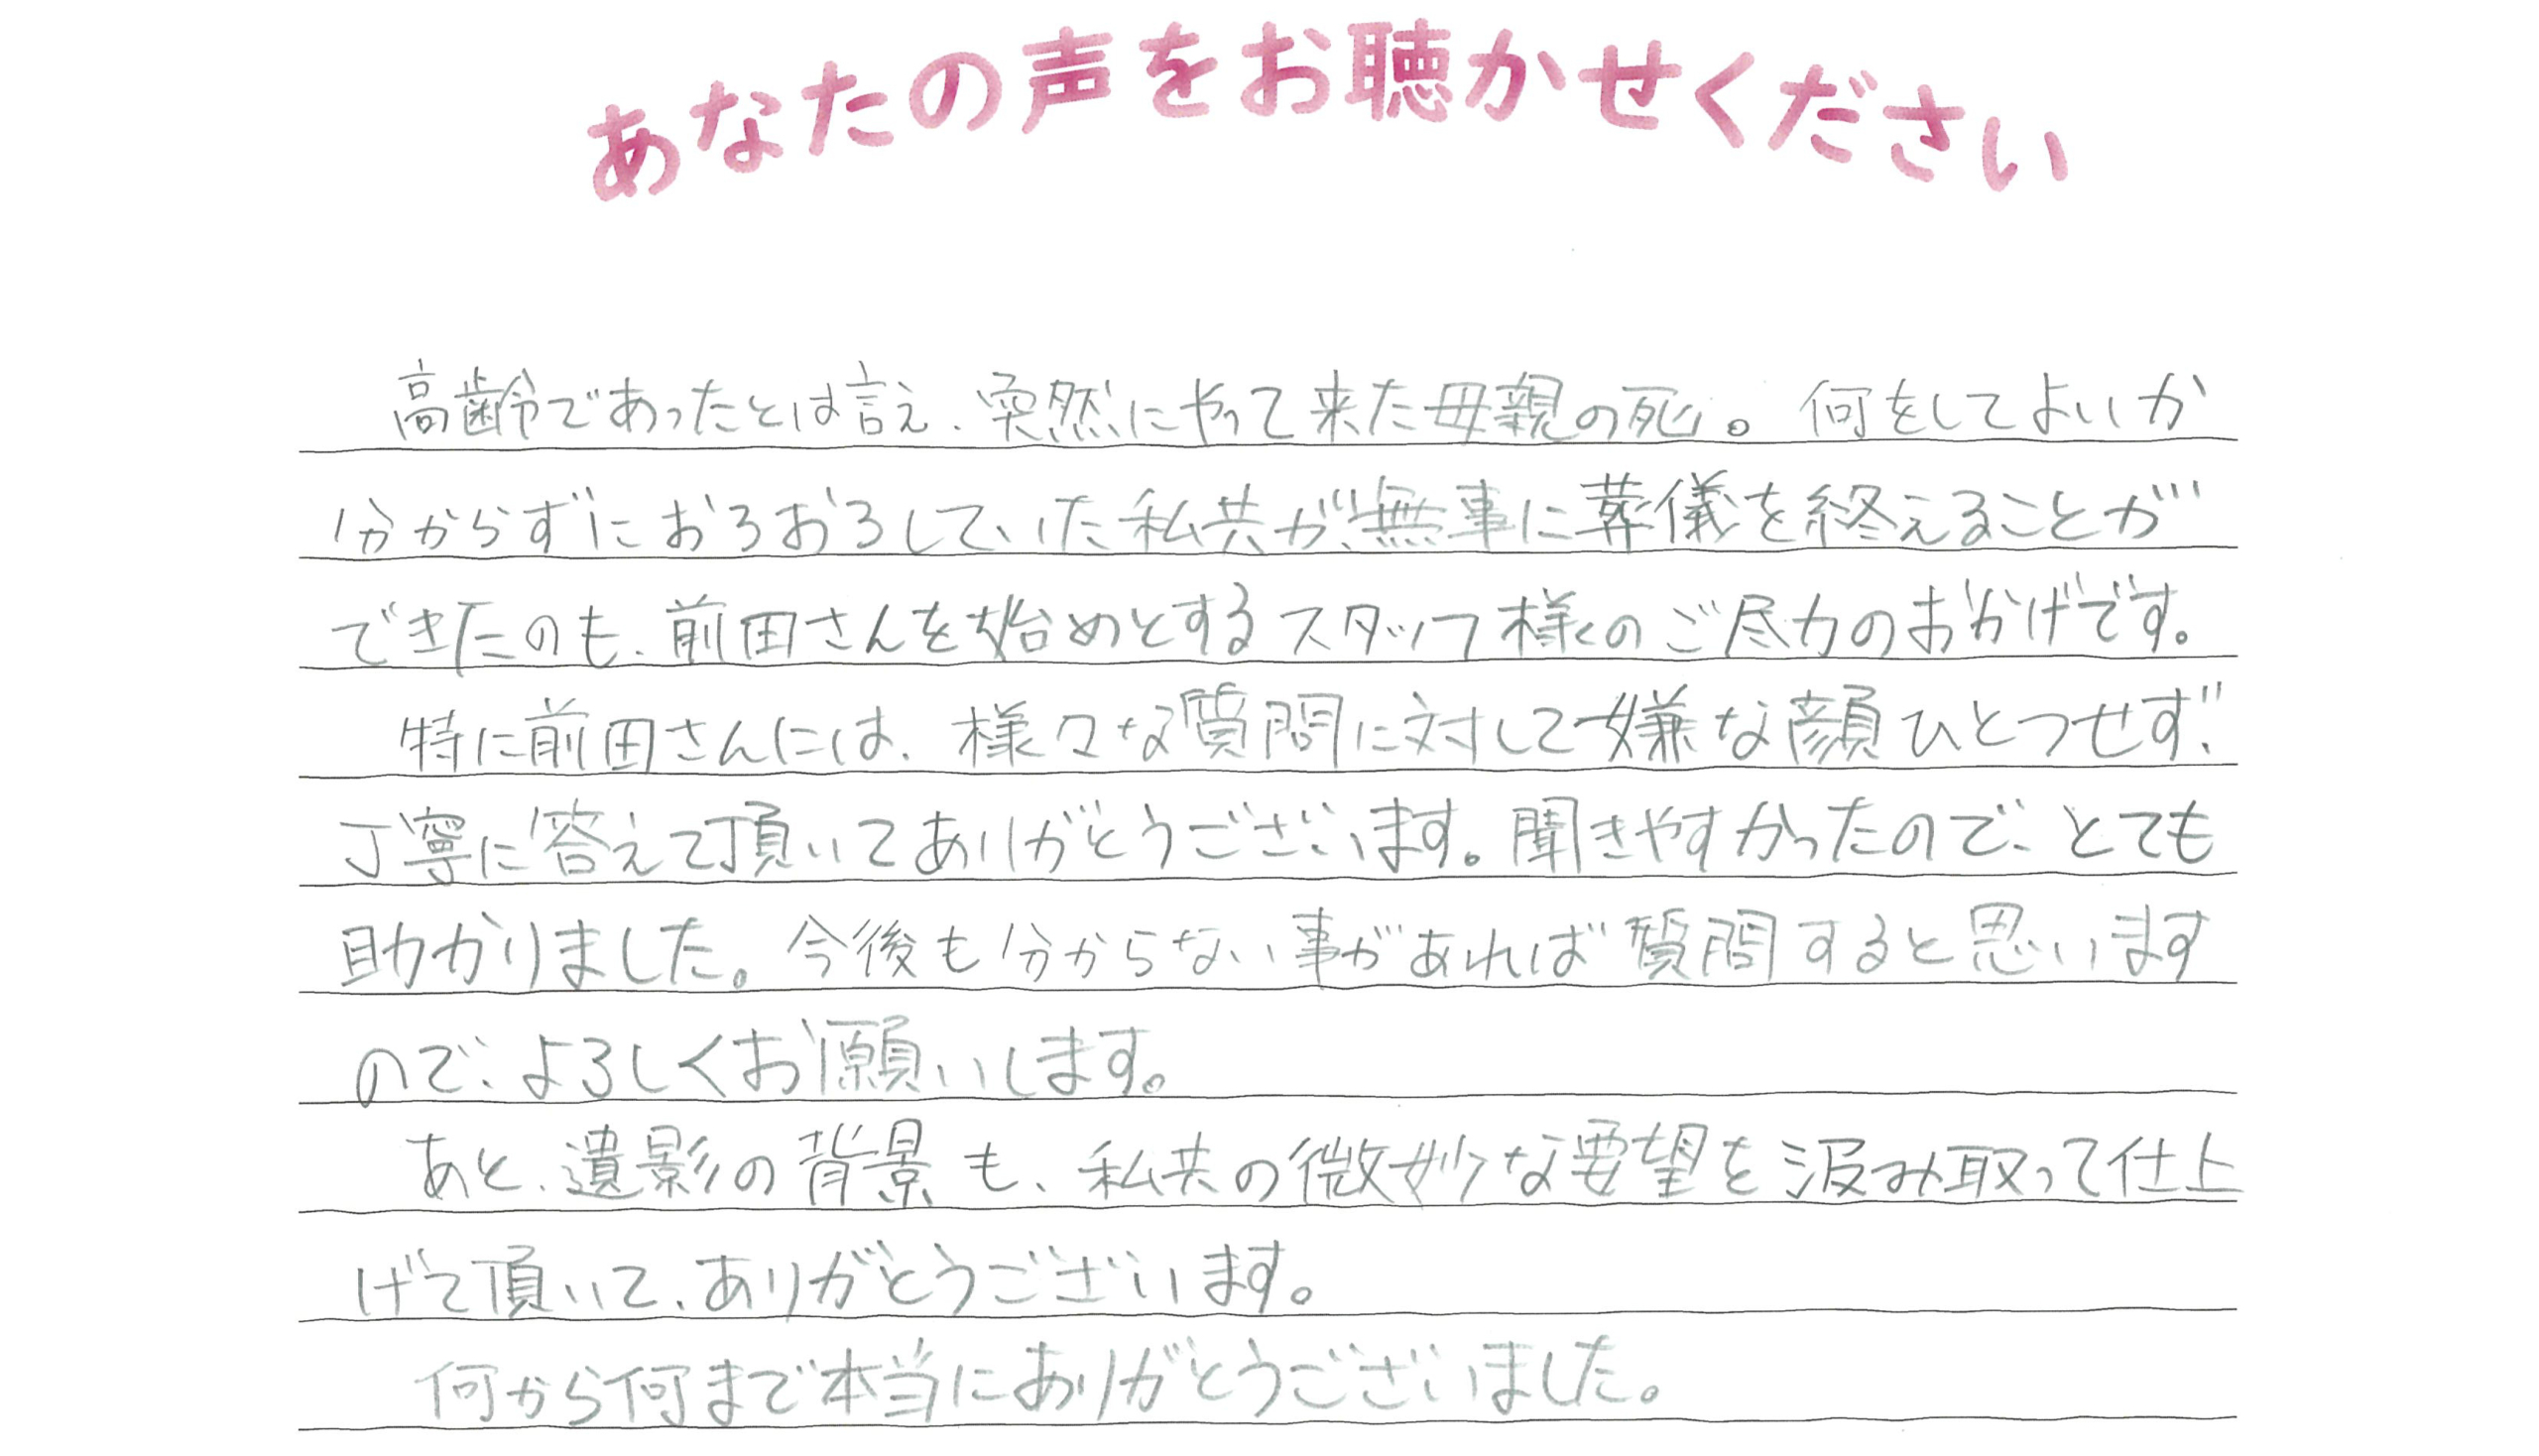 あなたの声をお聴かせください
高齢であったとは言え、突然にやって来た母親の死。何をしてよいか
分からずにおろおろしていた私共が、無事に葬儀を終えることが
できたのも、前田さんを始めとするスタッフ様のご尽力のおかげです。
特に前田さんには、様々な質問に対して嫌な顔ひとつせず、
丁寧に答えて頂いてありがとうございます。聞きやすかったので、とても
助かりました。今後も分からない事があれば質問すると思います
ので、よろしくお願いします。
あと、遺影の背景も、私共の微妙な要望を汲み取って仕上
げて頂いて、ありがとうございます。
何から何まで本当にありがとうございました。